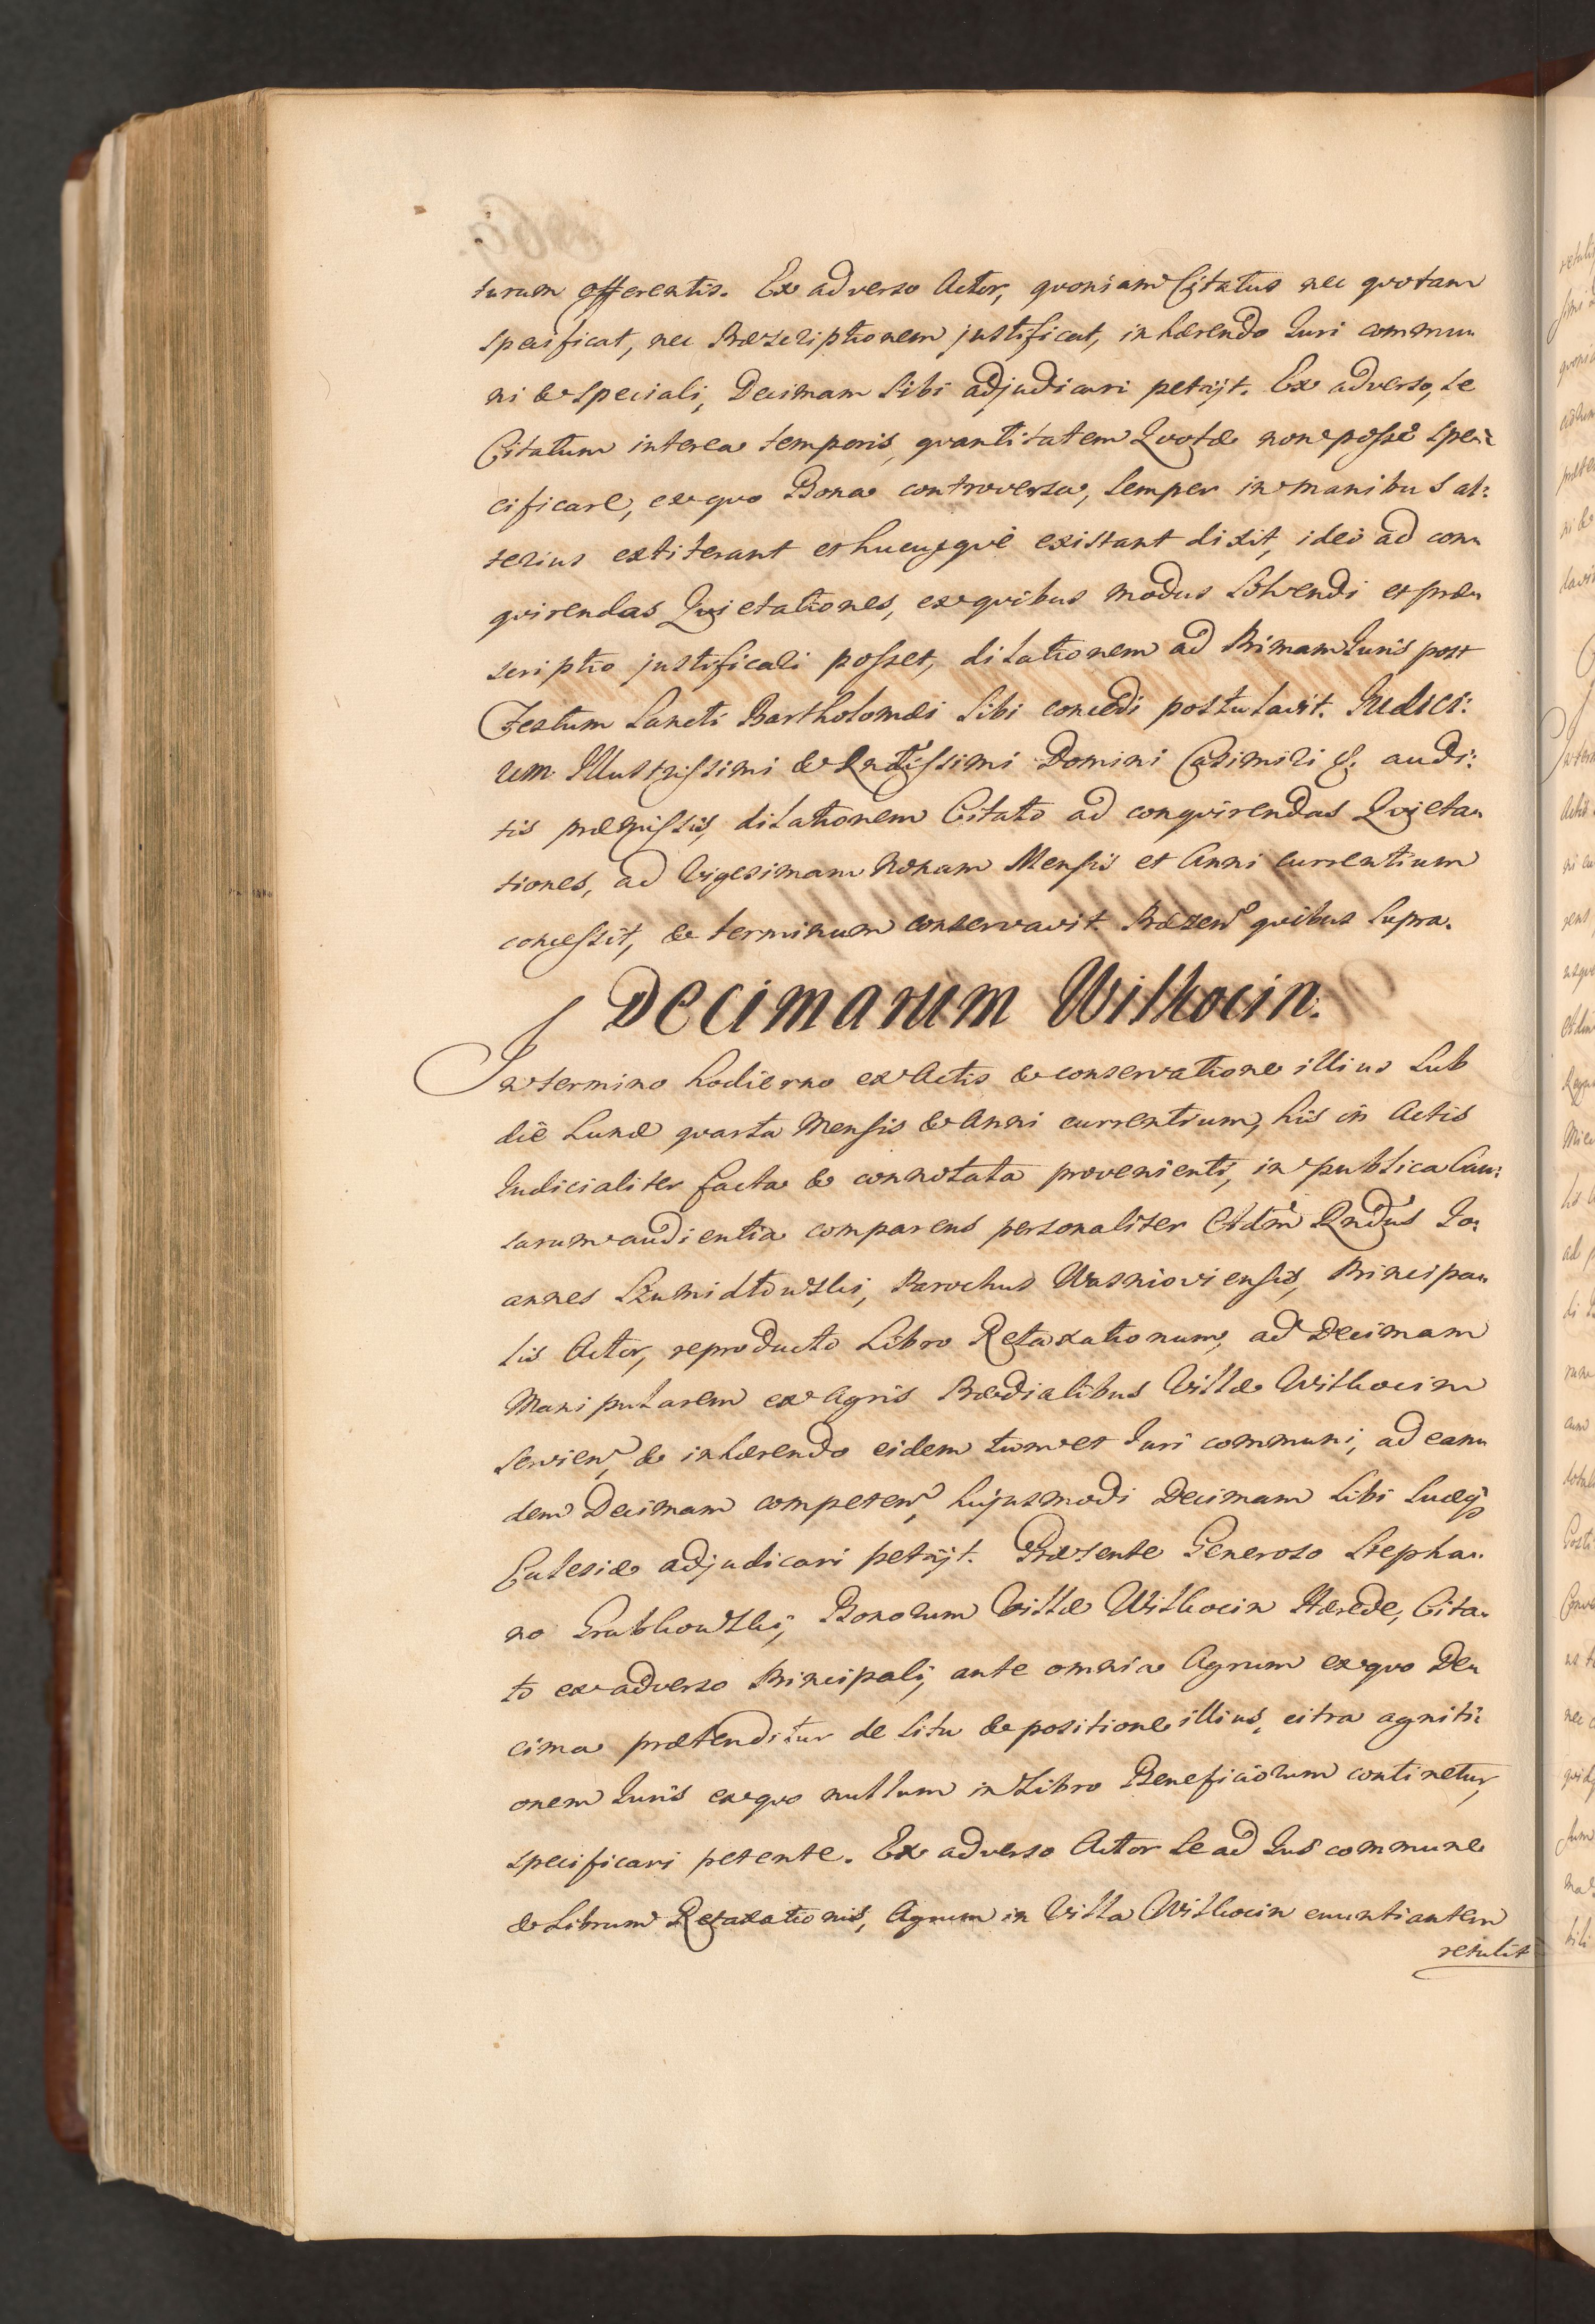 turum offerentis. Ex adverso Actor, quoniam Citatus nec quotam
specificat, nec Præscriptionem justificat, inhærendo Juri commu„
ni & speciali, Decimam sibi adjudicari petijt. Ex adverso, se
Citatum interea temporis, quantitatem Quotæ non posse spe„
cificare, ex quo Bona controversa, semper in manibus al:
terius extiterant et hucusque existant dixit, ideo ad con„
quirendas Quietationes, ex quibus modus solvendi et præ„
scriptio justificari posset, dilationem ad Primam Juris post
Festum Sancti Bartholomæi sibi concedi postulavit. Judici:
um Illustrissimi & Rndissimi Domini Casimiri &. audi:
tis præmissis, dilationem Citato ad conquirendas Quieta„
tiones, ad Vigesimam Nonam Mensis et Anni currentium
concessit, & terminum conservavit. Præsen quibus supra.
Decimarum Wilkocin.
In termino hodierno ex Actis & conservatione illius sub
die Lunæ quarta Mensis & Anni currentium, his in Actis
Judicialiter facta & connotata provenienti, in publica Cau:
sarum audientia comparens personaliter Adm Rndus Jo:
annes Szumidtowski, Parochus Wasnioviensis, Principa„
lis Actor, reproducto Libro Retaxationum, ad Decimam
Manipularem ex Agris Prædialibus Villæ Wilkocin
servien, & inhærendo eidem tum et Juri communi, ad ean„
dem Decimam competen, hujusmodi Decimam sibi suæq
Eclesiæ adjudicari petijt. Præsente Generoso Stepha„
no Grabkowski, Bonorum Villæ Wilkocin Hærede, Cita„
to ex adverso Principali, ante omnia Agrum ex quo De„
cima prætenditur de situ & positione illius, citra agniti:
onem Juris ex quo nullum in Libro Beneficiorum continetur,
specificari petente. Ex adverso Actor se ad Jus commune
& Librum Retaxationis, Agrum in Villa Wilkocin enuntiantem
retulit